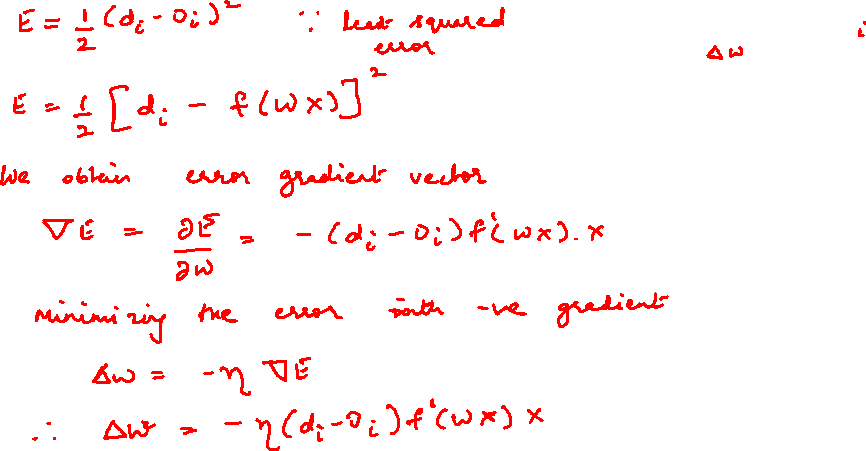 E = 1/2 (di - Oi)² ∵ least squared
error
Δw i
E = 1/2 [di - f(wx)]²
We obtain error gradient vector
∇E = ∂E/∂w = - (di - Oi) f'(wx). x
Minimizing the error with -ve gradient
Δw = -η ∇E
∴ Δw = -η(di-Oi) f'(wx) x